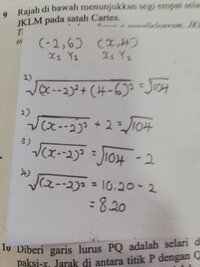 9 Rajah di bawah menunjukkan segi empat selari
JKLM pada satah Cartes.
(-2,6) (x,4)
x₁ y₁ x₂ y₂
1) √(x--2)²+(4-6)² = √104
2) √(x--2)² + 2 = √104
3) √(x--2)² = √104 - 2
4) √(x--2)² = 10.20 - 2
= 8.20
10 Diberi garis lurus PQ adalah selari d
paksi-x. Jarak di antara titik P dengan Q